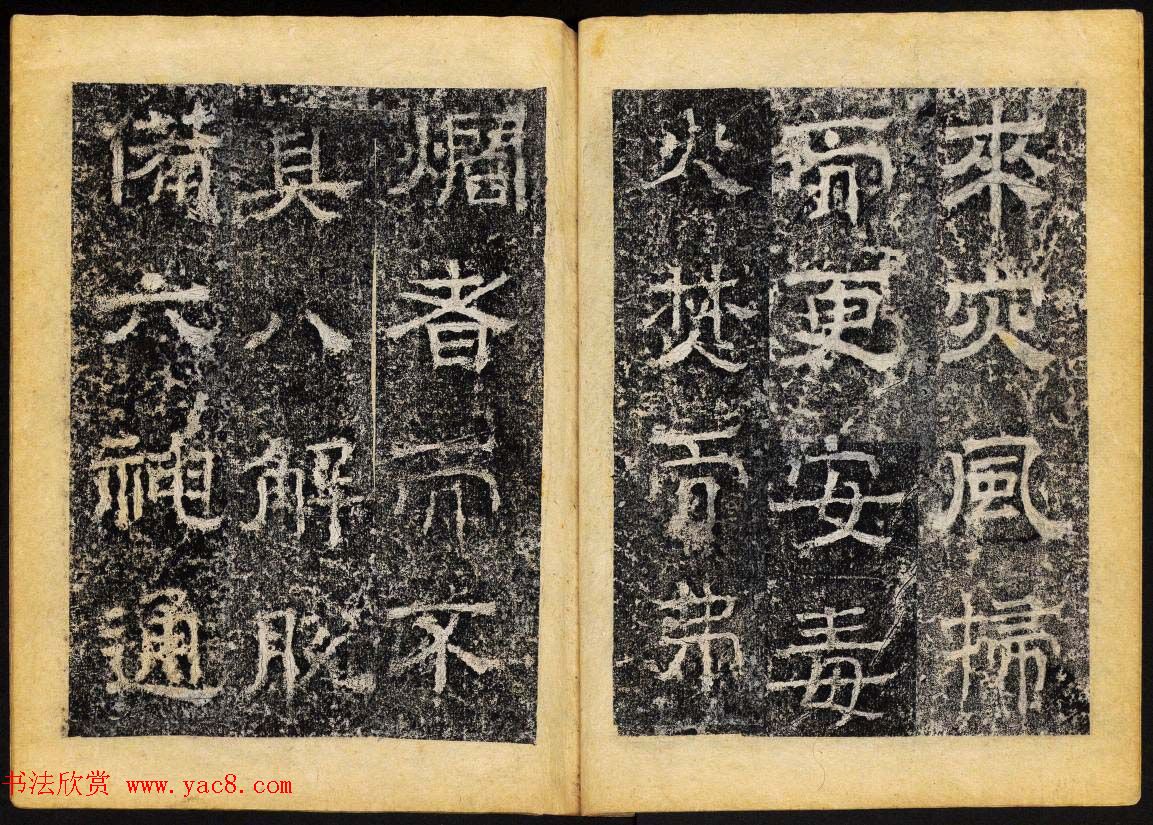 來灾風掃
而更安毒
火焚而弗
燗者而不
具八解脫
備六神通
书法欣赏 www.yac8.com